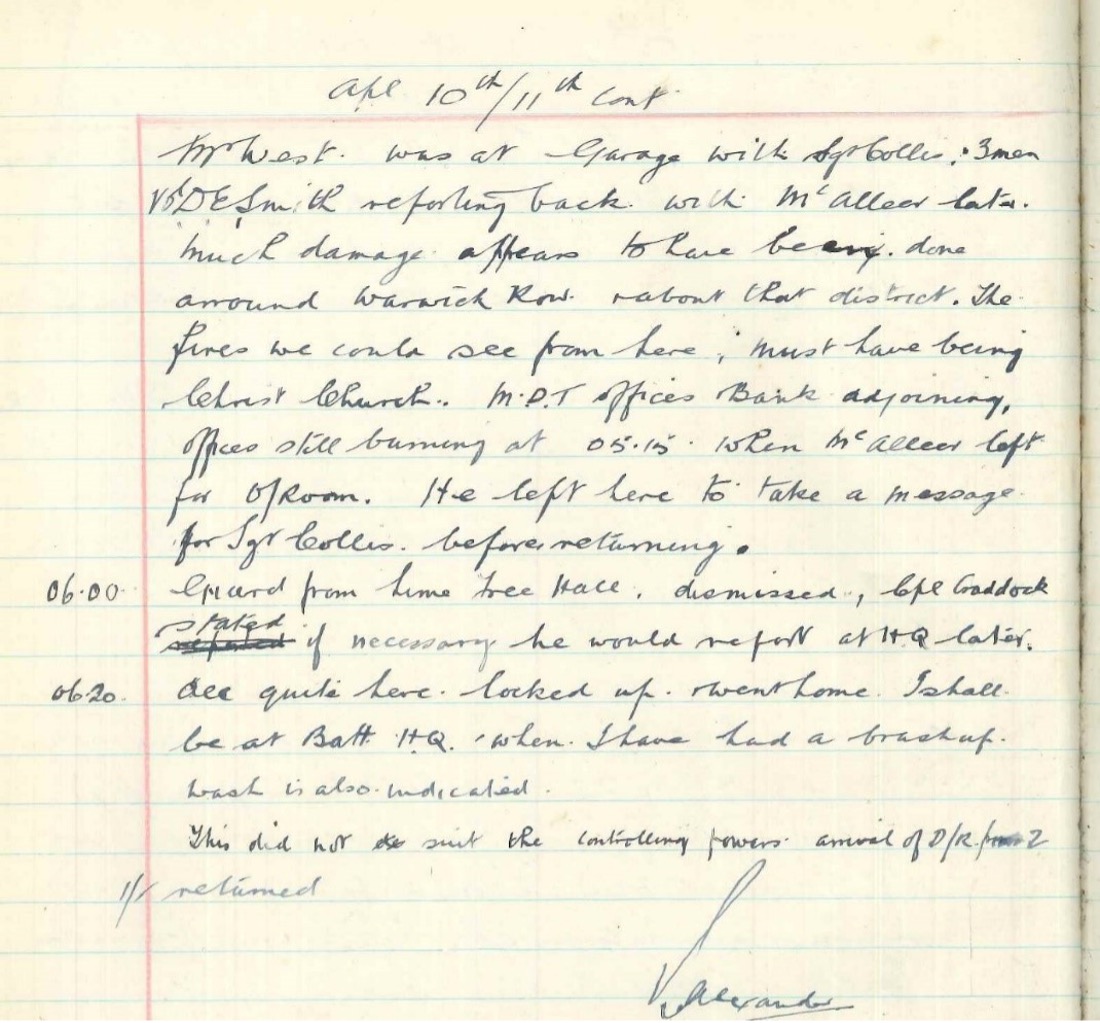 Apl 10th/11th cont
Mr West. was at Garage with Sgt Collis, 3 men
D E Smith reporting back. with McAlleer later.
Much damage appears to have being. done
arround Warwick Row. & about that district. The
fires we could see from here, must have being
Christ Church. M.P.T offices Bank adjoining,
offices still burning at 05.15. when McAlleer left
for O/Room. He left here to take a message
for Sgt Collis. before returning.
06.00. Guard from Lime Tree Hall. dismissed, Cpl Craddock
stated if necessary he would report at HQ later.
06.20. All quite here. locked up. & went home. I shall
be at Batt. H.Q. when. I have had a brash up.
wash is also indicated.
This did not suit the controlling powers. arrival of D/R. from
returned
Alexander